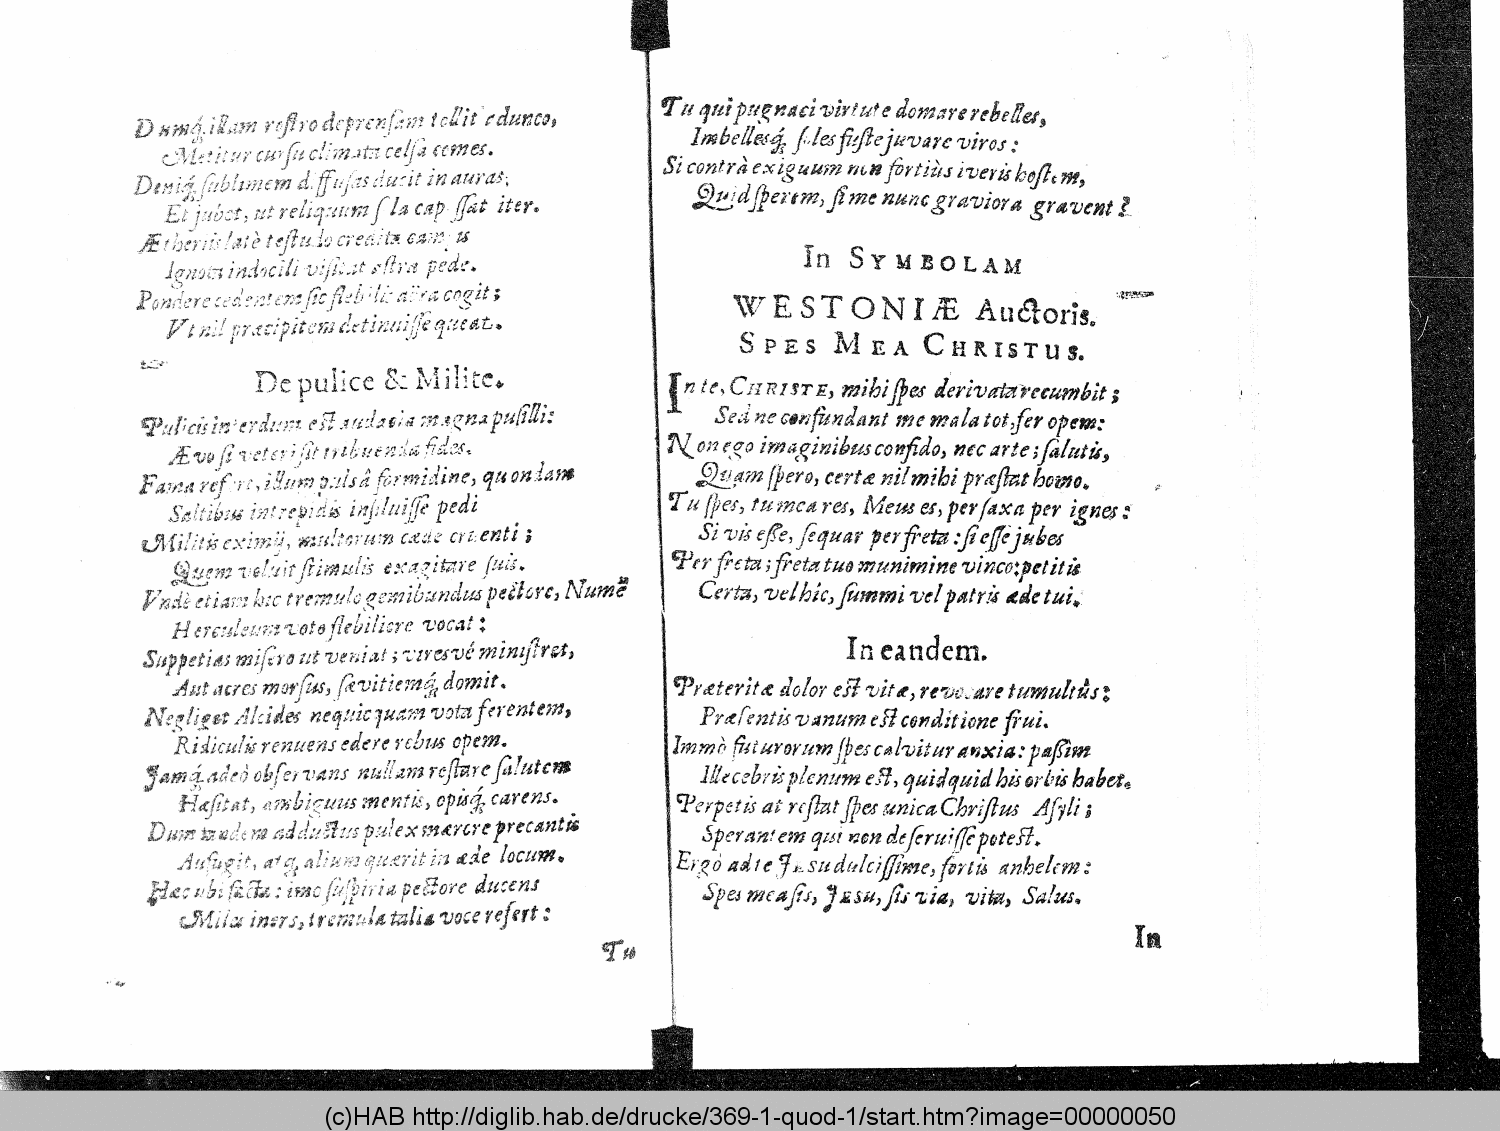 Dumq́; illam rostro deprensam tollit edunco,
Metitur cursu climata celsa comes.
Deniq́; sublimem diffusas ducit in auras;
Et jubet, ut reliquum sola capessat iter.
Ætheriis latè testudo credita campis
Ignota indocili visitat astra pede.
Pondere cedentem sic flebilis aura cogit;
Vt nil præcipitem detinuisse queat.
De pulice & Milite.
Pulicis interdum est audacia magna pusilli:
Ævo si veteri sit tribuenda fides.
Fama refert, illum pulsâ formidine, quondam
Saltibus intrepidis insiluisse pedi
Militis eximij, multorum cæde cruenti;
Quem voluit stimulis exagitare suis.
Vndè etiam huc tremulo gemibundus pectore, Numẽ
Herculeum voto flebiliore vocat:
Suppetias misero ut veniat; viresvé ministret,
Aut acres morsus, sævitiemq́; domit.
Negliget Alcides nequicquam vota ferentem,
Ridiculis renuens edere rebus opem.
Jamq́; adeò observans nullam restare salutem
Hæsitat, ambiguus mentis, opisq́; carens.
Dum tandem adductus pulex mærore precantis
Aufugit, atq́; alium quærit in æde locum.
Hæc ubi facta: imo suspiria pectore ducens
Miles iners, tremula talia voce refert:
Tu
Tu qui pugnaci virtute domare rebelles,
Imbellesq́; soles juste juvare viros:
Si contrà exiguum non fortiùs iveris hostem,
Quid sperem, si me nunc graviora gravent?
In SYMBOLAM
WESTONIÆ Auctoris.
SPES MEA CHRISTUS.
In te, CHRISTE, mihi spes derivata recumbit;
Sed ne confundant me mala tot, fer opem:
Non ego imaginibus confido, nec arte; salutis,
Quam spero, certæ nil mihi præstat homo.
Tu spes, tu mea res, Meus es, per saxa per ignes:
Si vis esse, sequar per freta: si esse jubes
Per freta; freta tuo munimine vinco: petitis
Certa, vel hic, summi vel patris æde tui.
In eandem.
Præteritæ dolor est vitæ, revocare tumultûs:
Præsentis vanum est conditione frui.
Immò futurorum spes calvitur anxia: passim
Illecebris plenum est, quidquid his orbis habet.
Perpetis at restat spes unica Christus Asyli;
Sperantem qui non deseruisse potest.
Ergò ad te Jesu dulcissime, fortis anhelem:
Spes mea sis, Jesu, sis via, vita, Salus.
In
(c)HAB http://diglib.hab.de/drucke/369-1-quod-1/start.htm?image=00000050